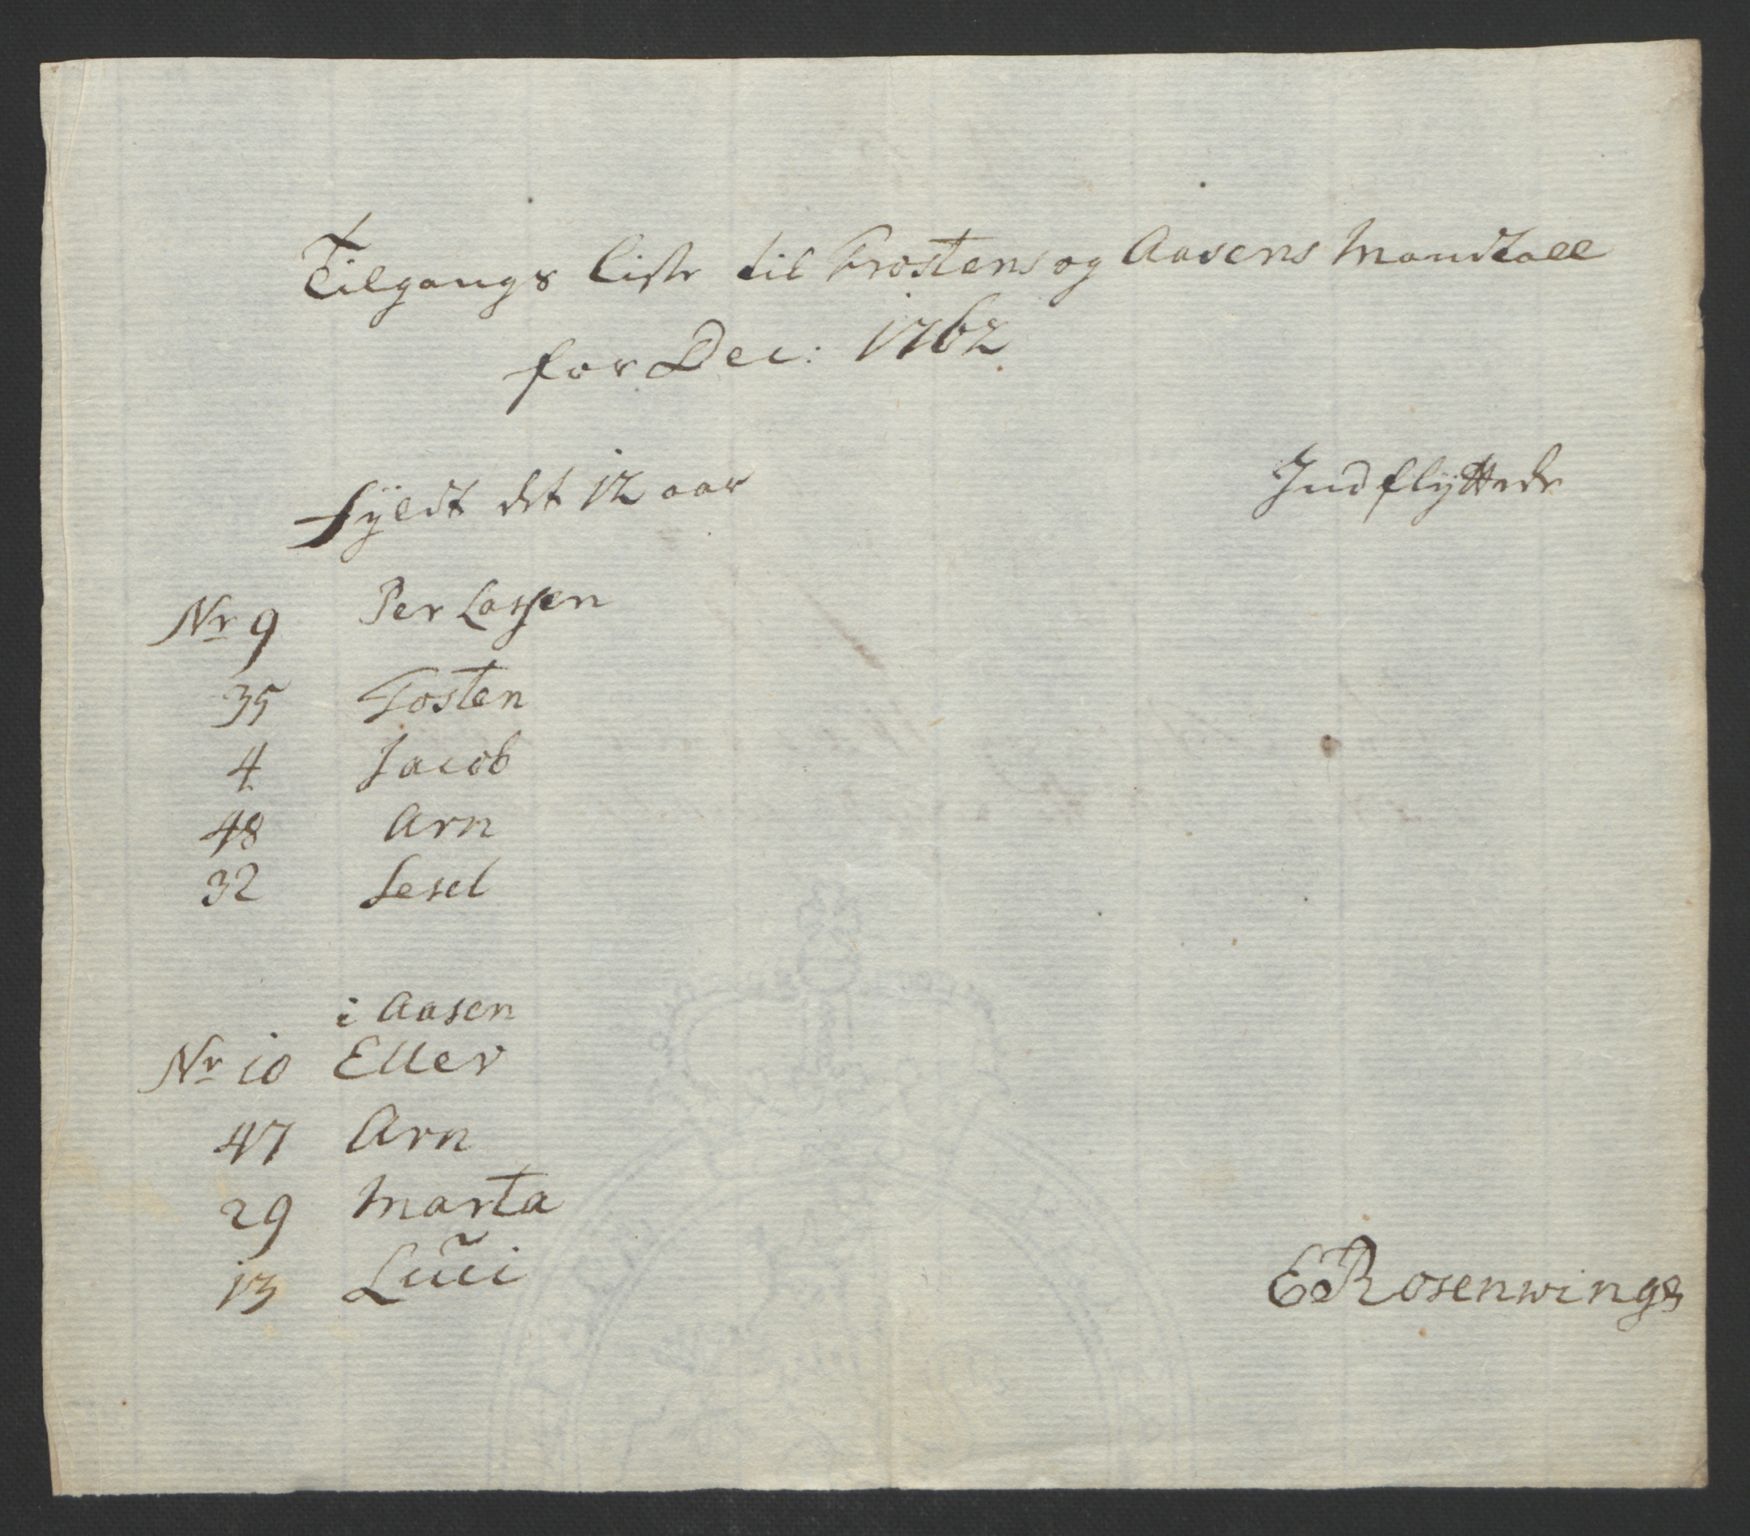 Tilgangs liste til Frostens og Aasens Mandtall
for Dec: 1762
fyldt det 12 aar
Indflyttede
Nr 9 Per Lassen
35 Tosten
4 Jacob
48 Arn
32 Sesel
i Aasen
Nr 10 Eller
47 Arn
29 Marta
13 Luci
E Rosenwinge